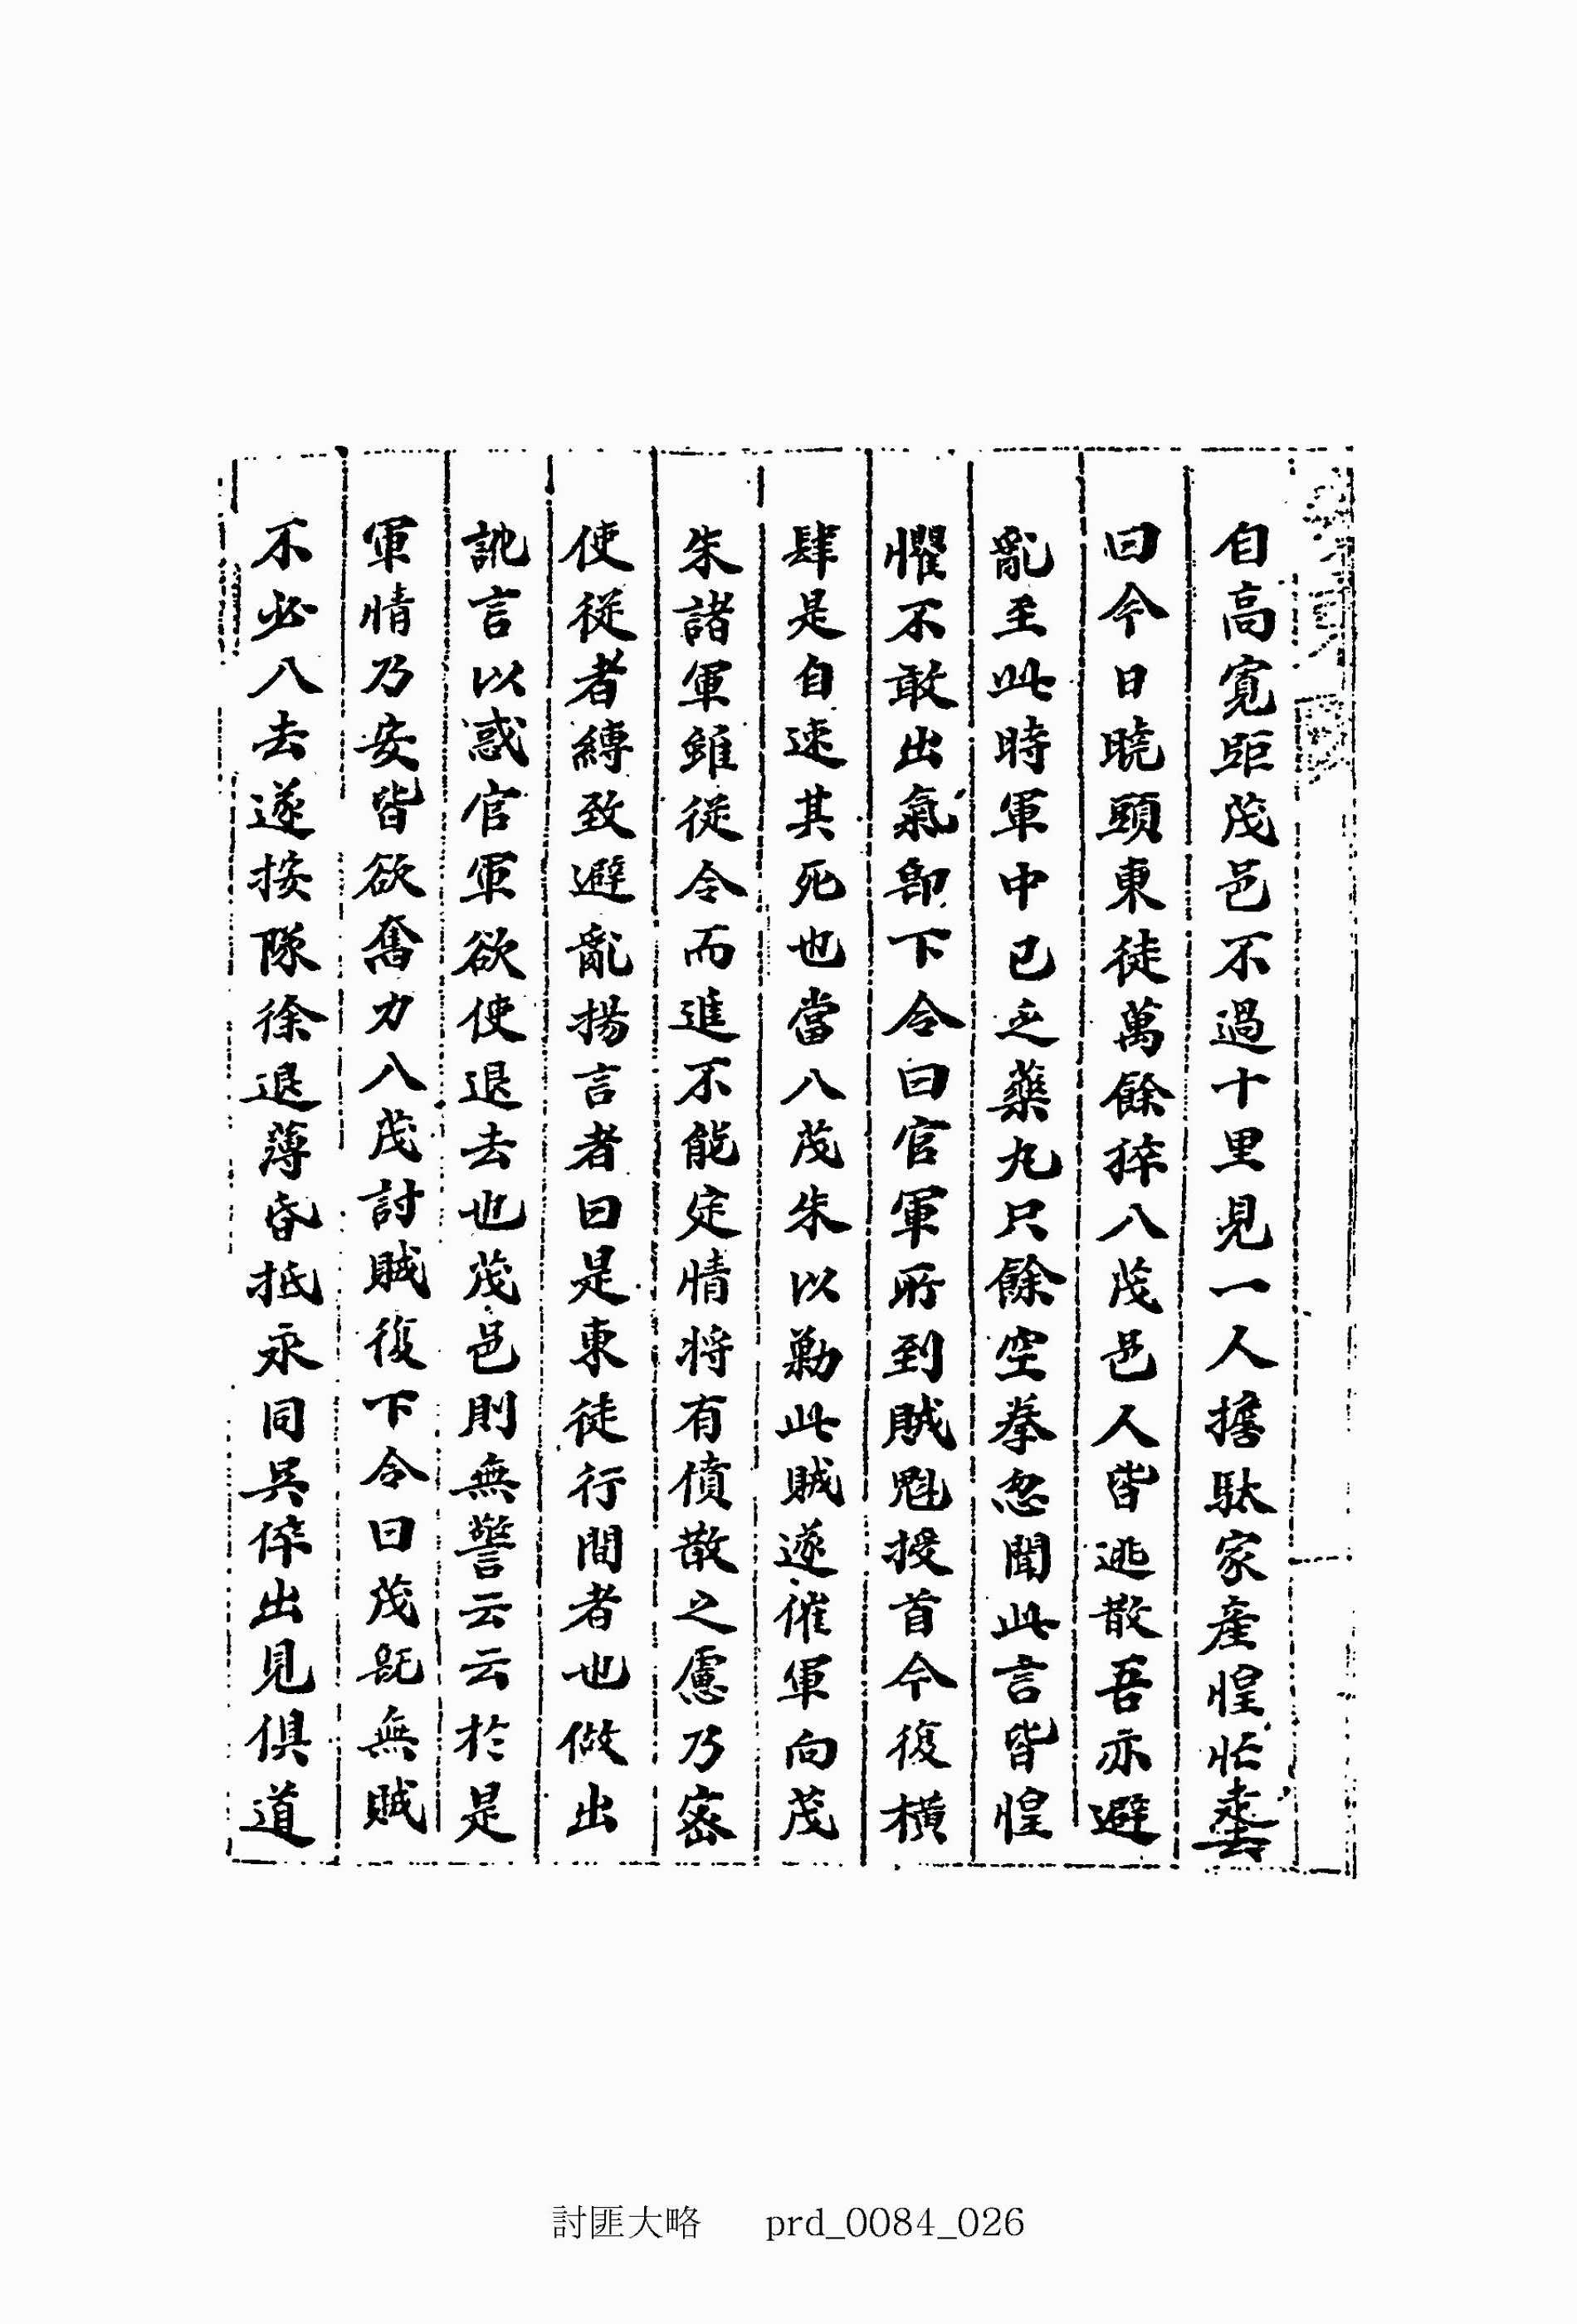 自高寬距茂邑不過十里見一人擔駄家産惶忙走去
曰今日曉頭東徒萬餘猝八茂邑人皆逃散吾亦避
亂至此時軍中已乏藥丸只餘空拳忽聞此言皆惶
懼不敢出氣卽下令曰官軍所到賊魁授首今復橫
肆是自速其死也當八茂朱以勦此賊遂催軍向茂
朱諸軍雖從令而進不能定情將有僨散之慮乃密
使從者縛致避亂揚言者曰是東徒行間者也做出
訛言以惑官軍欲使退去也茂邑則無警云云於是
軍情乃安皆欲奮力八茂討賊復下令曰茂旣無賊
不必八去遂按隊徐退薄昏抵永同吳倅出見俱道
討匪大略 prd_0084_026